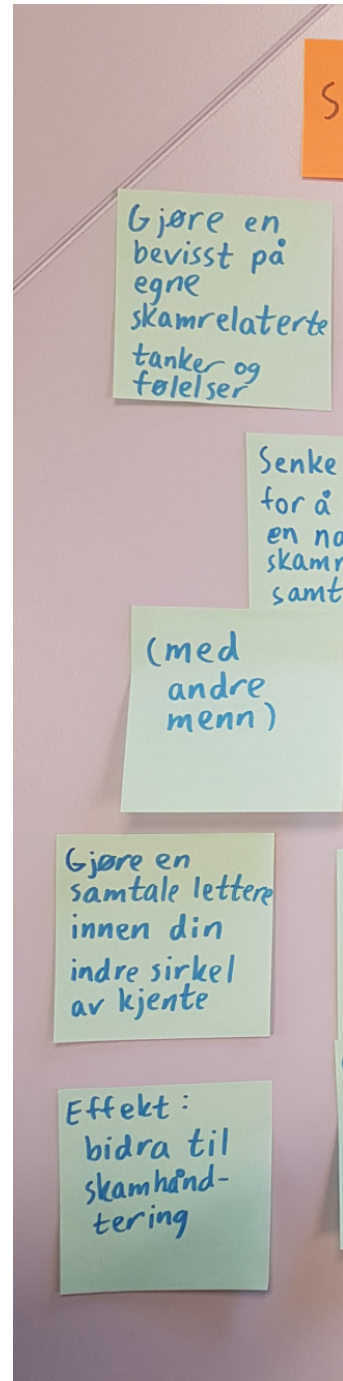 S
Gjøre en
bevisst på
egne
skamrelaterte
tanker og
følelser
Senke
for å
en
(med
andre
menn)
Gjøre en
samtale lettere
innen din
indre sirkel
av kjente
Effekt:
bidra til
skamhånd-
tering